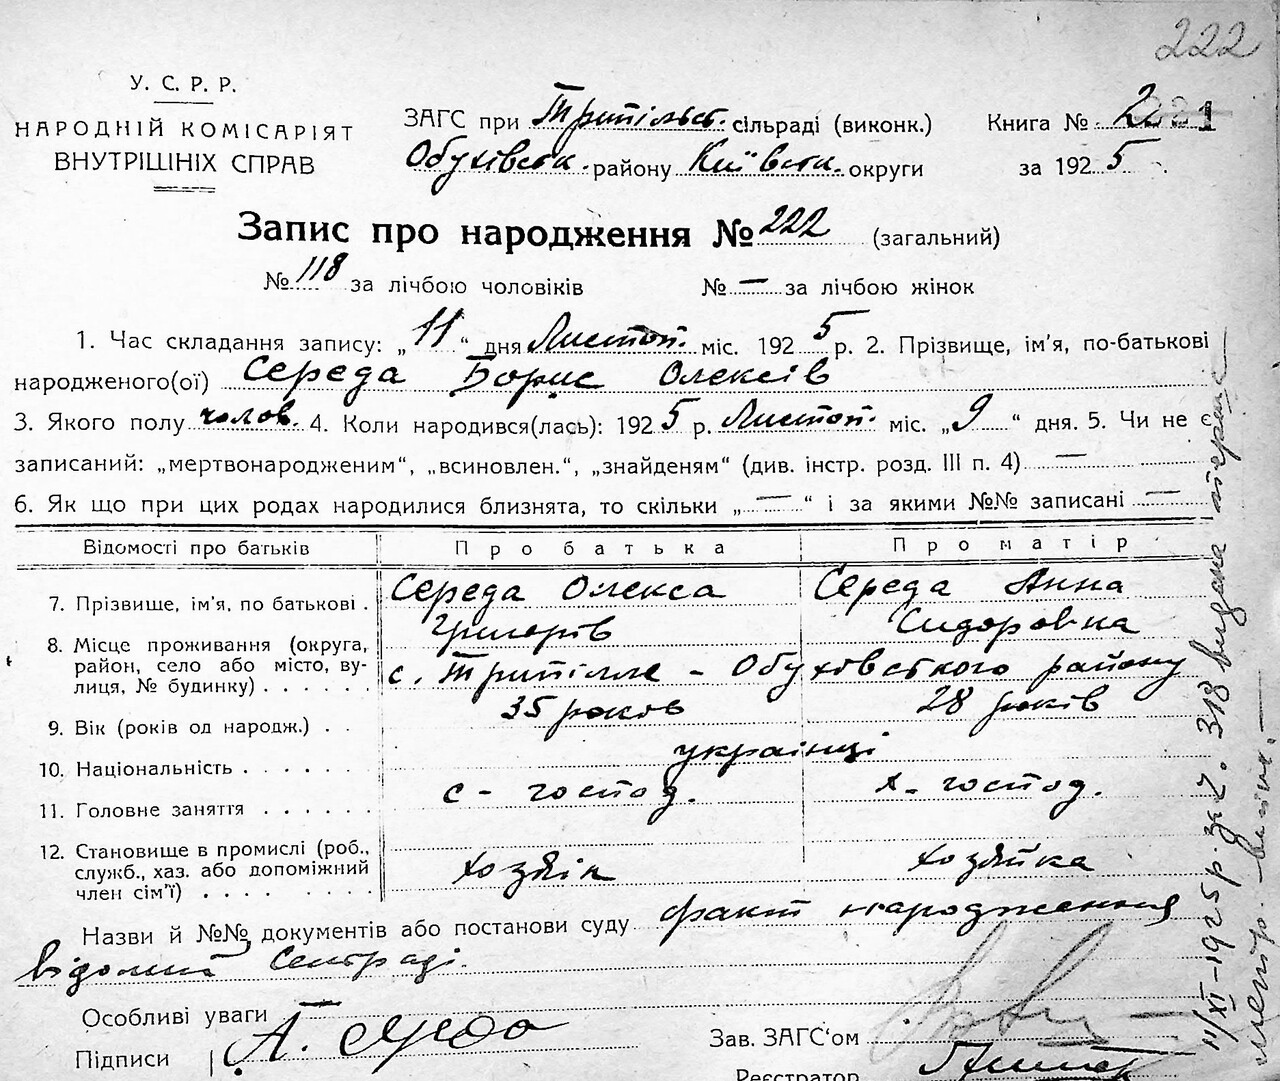 222
У. С. Р. Р.
НАРОДНІЙ КОМІСАРІЯТ
ВНУТРІШНІХ СПРАВ
ЗАГС при Трипільськ. сільраді (виконк.)
Книга № 2 1
Обухівськ. району Київськ. округи
за 1925
Запис про народження № 222 (загальний)
№ 118 за лічбою чоловіків № — за лічбою жінок
1. Час складання запису: „11“ дня Листоп. міс. 1925 р. 2. Прізвище, ім'я, по-батькові
народженого(ої) Середа Борис Олексів
3. Якого полу чолов. 4. Коли народився(лась): 1925 р. Листоп. міс. „9“ дня. 5. Чи не є
записаний: „мертвонародженим“, „всиновлен.“, „знайденям“ (див. інстр. розд. III п. 4) —
6. Як що при цих родах народилися близнята, то скільки „—“ і за якими №№ записані —
Відомості про батьків Про батька Про матір
7. Прізвище, ім'я, по батькові . Середа Олекса Григорів Середа Анна Сидоровна
8. Місце проживання (округа,
район, село або місто, ву-
лиця, № будинку) . . . . . . с. Трипілле - Обухівського району
9. Вік (років од народж.) . . 35 років 28 років
10. Національність . . . . . . . українці
11. Головне заняття . . . . . . с - господ. х - господ.
12. Становище в промислі (роб.,
служб., хаз. або допоміжний
член сім'ї) . . . . . . . . хозяїн хозяйка
Назви й №№ документів або постанови суду факт народження
відомий Сельраді.
Особливі уваги —
Підписи А. Середа
Зав. ЗАГС'ом
Реєстратор
11/XI-1925 р. за ч. 318 видана